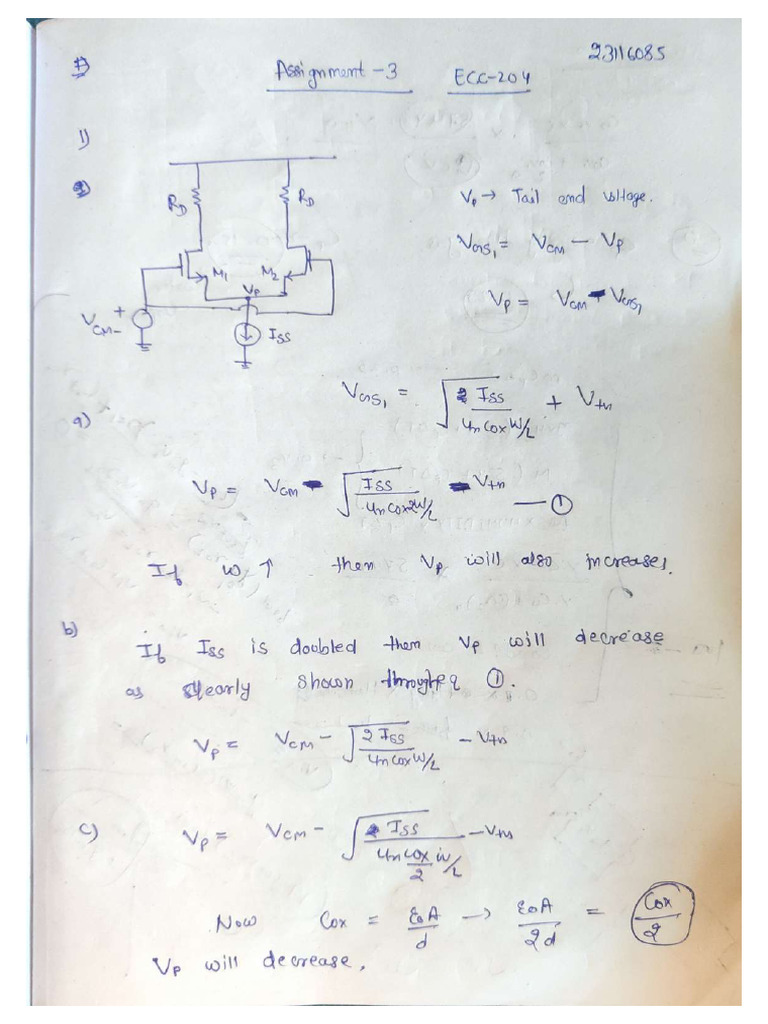 23116085
Assignment -3 ECC-204
1)
RD RD
M1 M2
VP
VCM + -
ISS
VP → Tail end voltage.
VGS1 = VCM - VP
VP = VCM - VGS1
a)
VGS1 = √(ISS / μnCox W/L) + Vtn
VP = VCM - √(ISS / μnCox W/L) - Vtn —— ①
If W ↑ then VP will also increases.
b)
If ISS is doubled then VP will decrease
as clearly shown through eq ①.
VP = VCM - √(2 ISS / μnCox W/L) - Vtn
c) VP = VCM - √(ISS / μn Cox/2 W/L) - Vtn
Now Cox = ε0A/d → ε0A/2d = Cox/2
VP will decrease.